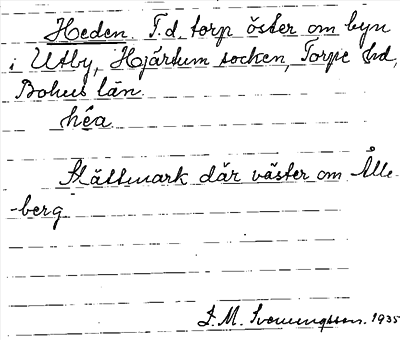 Heden. F.d. torp öster om byn
i Utby, Hjärtum socken, Torpe hd,
Bohus län.
héa
Slättmark där väster om Ålle-
-berg
J. M. Svenungsson. 1935